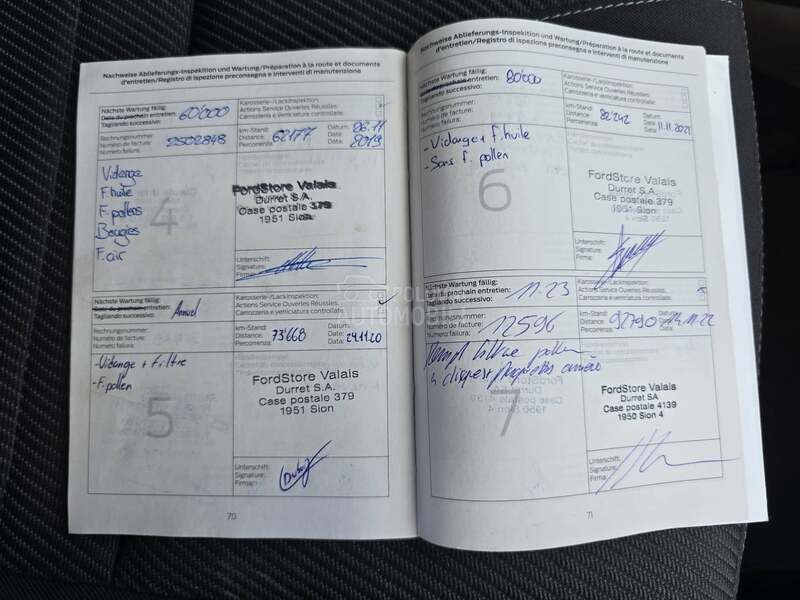 Nachweise Ablieferungs-Inspektion und Wartung/Préparation à la route et documents
d'entretien/Registro di ispezione preconsegna e interventi di manutenzione
Nächste Wartung fällig:
Date du prochain entretien:
Tagliando successivo:
60'000
Karosserie-/Lackinspektion:
Actions Service Ouvertes Résultes:
Carrozzeria e verniciatura controllate:
Rechnungsnummer:
Numéro de facture:
Numero fattura:
2502848
km-Stand:
Distance:
Percorrenza:
62177
Datum:
Date:
Data:
26.11
2019
Vidange
F. huile
F. pollens
Bougies
F. air
4
FordStore Valais
Durret S.A.
Case postale 379
1951 Sion
Unterschrift:
Signature:
Firma:
Nächste Wartung fällig:
Date du prochain entretien:
Tagliando successivo:
Annuel
Karosserie-/Lackinspektion:
Actions Service Ouvertes Résultes:
Carrozzeria e verniciatura controllate:
Rechnungsnummer:
Numéro de facture:
Numero fattura:
km-Stand:
Distance:
Percorrenza:
73'668
Datum:
Date:
Data:
24.11.20
- Vidange + Filtre
- F. pollen
5
FordStore Valais
Durret S.A.
Case postale 379
1951 Sion
Unterschrift:
Signature:
Firma:
70
Nachweise Ablieferungs-Inspektion und Wartung/Préparation à la route et documents
d'entretien/Registro di ispezione preconsegna e interventi di manutenzione
Nächste Wartung fällig:
Date du prochain entretien:
Tagliando successivo:
80'000
Karosserie-/Lackinspektion:
Actions Service Ouvertes Résultes:
Carrozzeria e verniciatura controllate:
Rechnungsnummer:
Numéro de facture:
Numero fattura:
km-Stand:
Distance:
Percorrenza:
82'242
Datum:
Date:
Data:
11.11.2021
- Vidange + F. huile
- Sans f. pollen
6
FordStore Valais
Durret S.A.
Case postale 379
1951 Sion
Unterschrift:
Signature:
Firma:
Nächste Wartung fällig:
Date du prochain entretien:
Tagliando successivo:
11.23
Karosserie-/Lackinspektion:
Actions Service Ouvertes Résultes:
Carrozzeria e verniciatura controllate:
Rechnungsnummer:
Numéro de facture:
Numero fattura:
12596
km-Stand:
Distance:
Percorrenza:
92790
Datum:
Date:
Data:
14.11.22
filtre pollen
7
FordStore Valais
Durret SA
Case postale 4139
1950 Sion 4
Unterschrift:
Signature:
Firma:
71